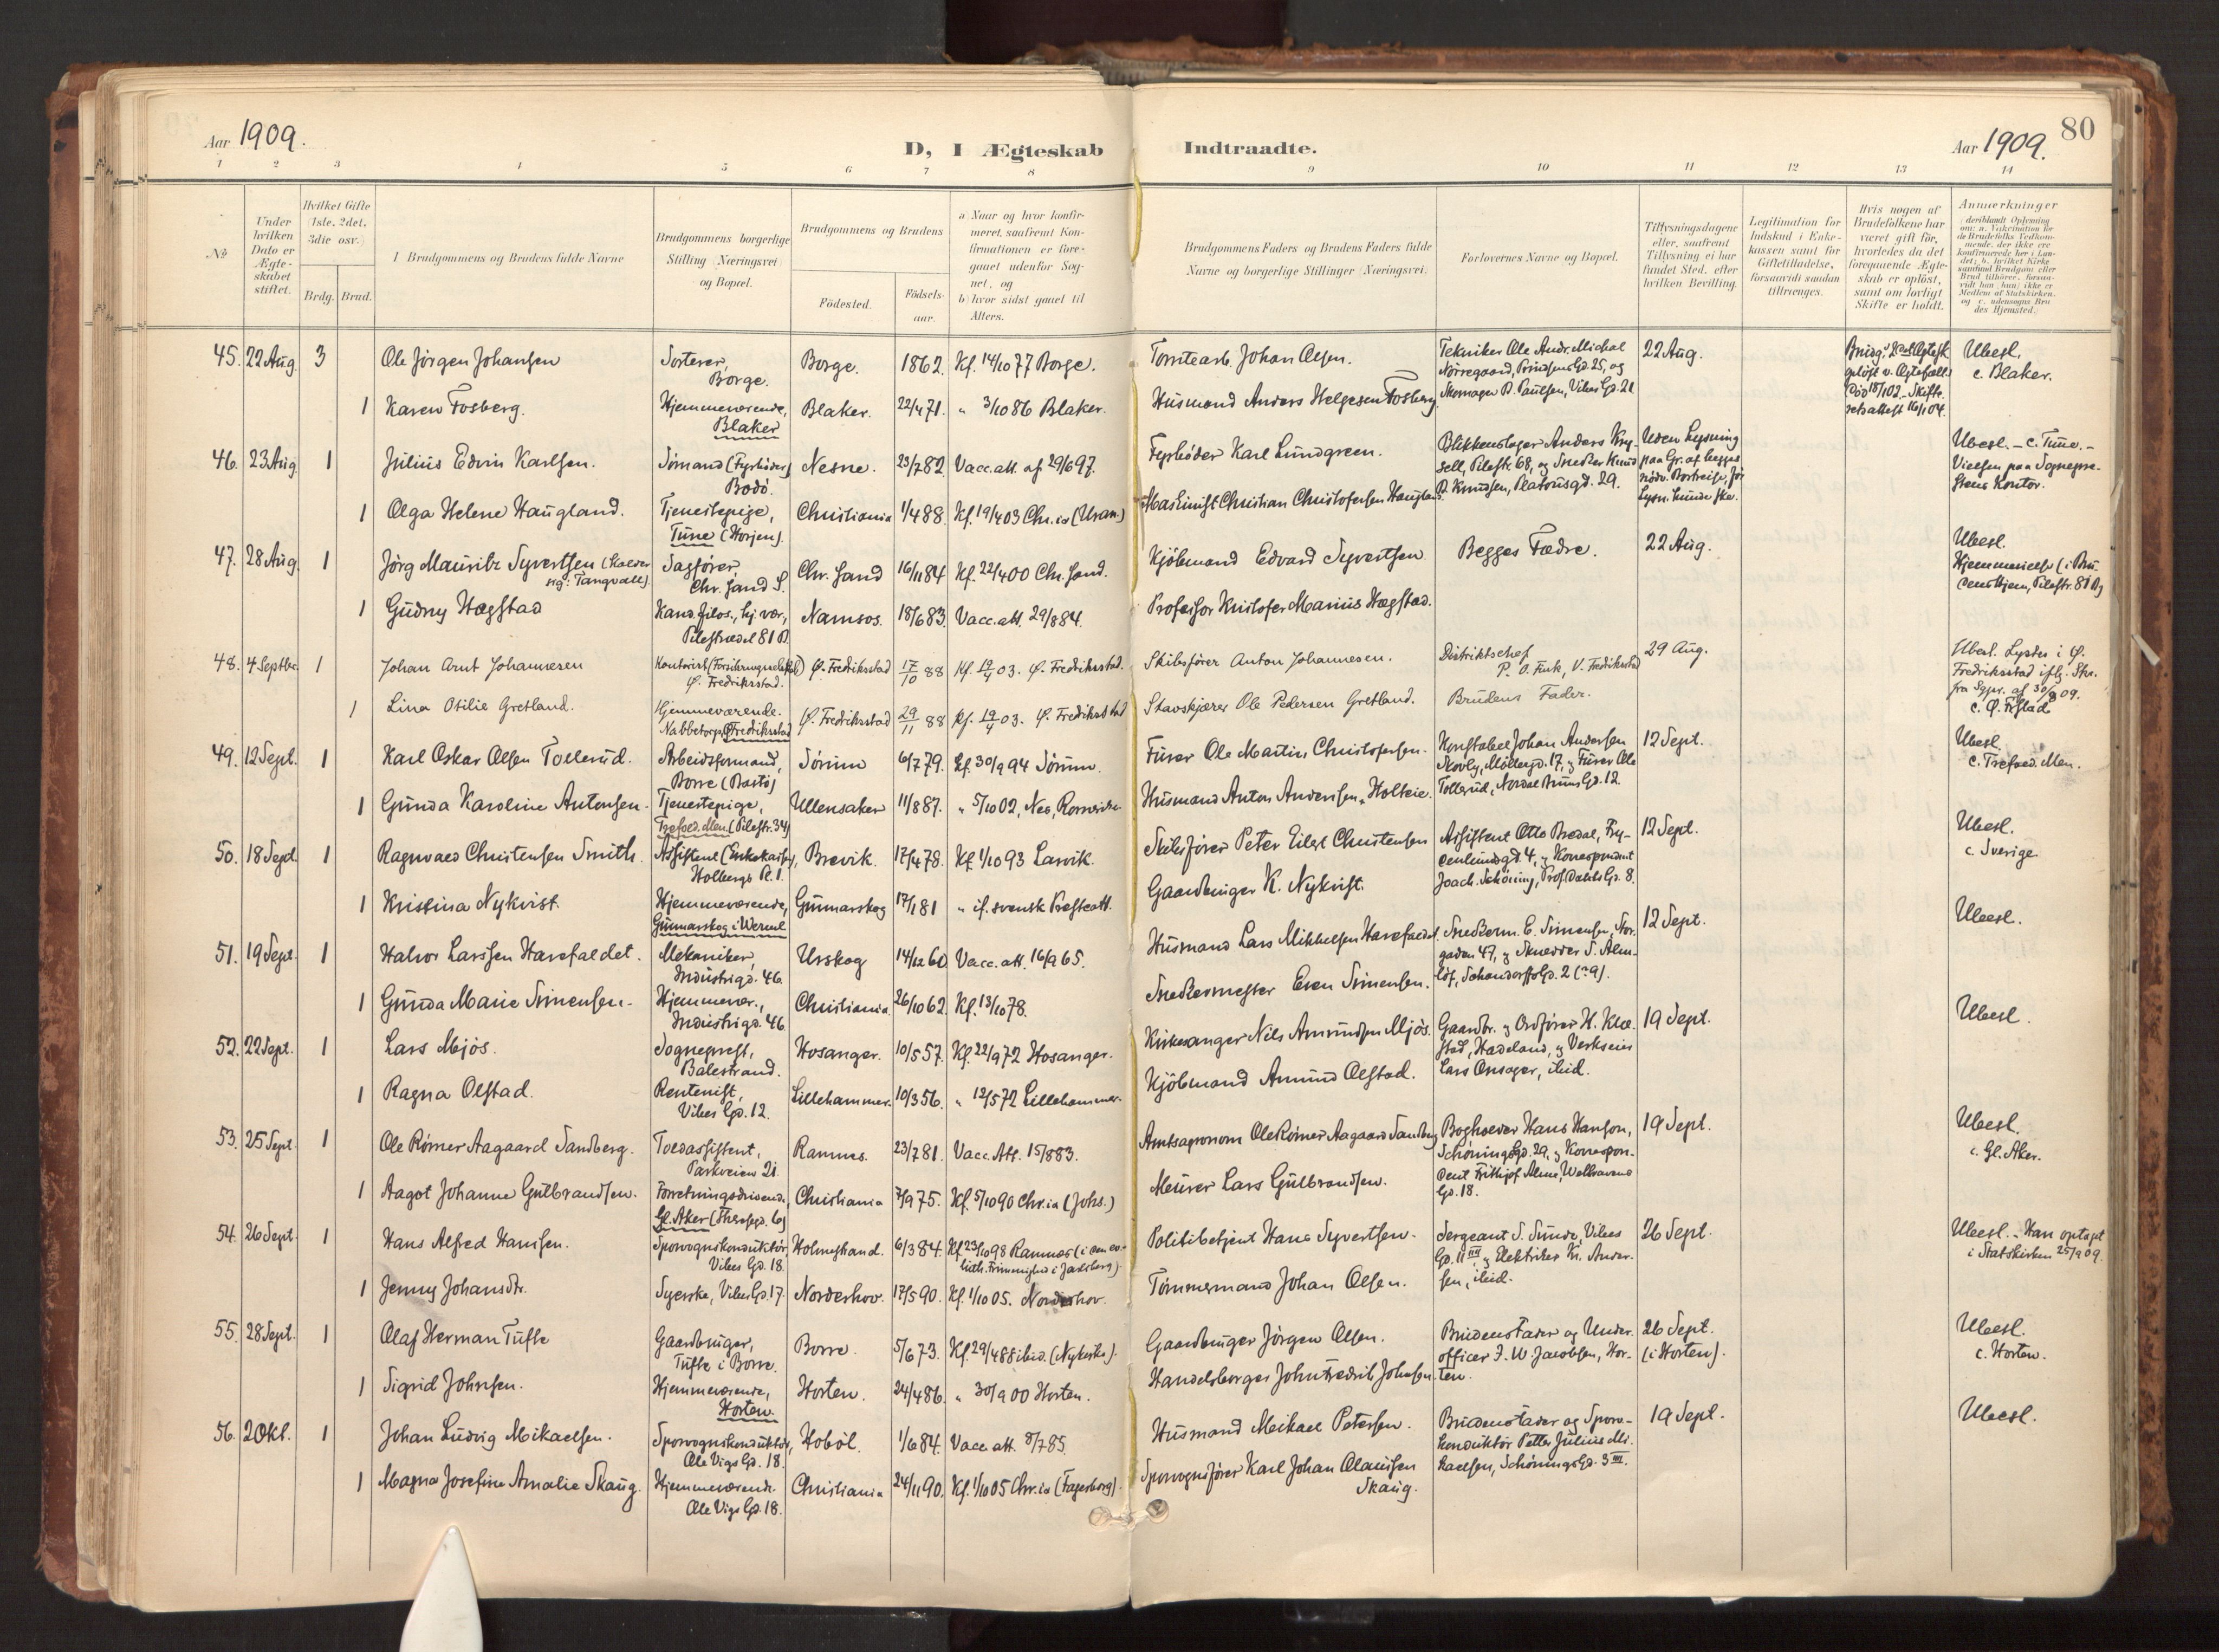 80
Aar 1909.
D, I Ægteskab Indtraadte.
Aar 1909.
1 2 3 4 5 6 7 8 9 10 11 12 13 14
No
Under hvilken Dato er Ægteskabet stiftet.
Hvilket Gifte (1ste, 2det, 3die osv.)
Brdg. Brud.
Brudgommens og Brudens fulde Navne
Brudgommens borgerlige Stilling (Næringsvei) og Bopæl.
Brudgommens og Brudens
Födested.
Födsels-aar.
a) Naar og hvor konfir-
meret, saafremt Kon-
firmationen er fore-
gaaet udenfor Sog-
net, og
b) hvor sidst gaaet til
Alters.
Brudgommens Faders og Brudens Faders fulde
Navne og borgerlige Stillinger (Næringsvei).
Forlovernes Navne og Bopæl.
Tillysningsdagene
eller, saafremt
Tillysning ei har
fundet Sted, efter
hvilken Bevilling.
Legitimation for
Indskud i Enke-
kassen samt for
Giftetilladelse,
forsaavidt saadan
tiltrænges.
Hvis nogen af
Brudefolkene har
været gift før,
hvorledes da det
foregaaende Ægte-
skab er oplöst,
samt om lovligt
Skifte er holdt.
Anmærkninger
(deriblandt Oplysning
om: a. Vakcination for
de Brudefolks Vedkom-
mende, der ikke ere
konfirmerede her i Lan-
det; b. hvilket Kirke-
samfund Brudgom eller
Brud tilhører, forsaa-
vidt han (hun) ikke er
Medlem af Statskirken,
og c. udensogns Bru-
des Hjemsted.)
45. 22 Aug. 3 Ole Jörgen Johansen Sorterer, Borge. Borge. 1862. Kf. 14/10 77 Borge. Tomtearb. Johan Olsen. Tekniker Ole Andr. Michal Nörregaard, Prinsens Gd. 25, og Skomager P. Paulsen, Vibes Gd. 21 22 Aug. Ubesl. c. Blaker.
1 Karen Fosberg. Hjemmeværende, Blaker Blaker. 22/4 71. " 3/10 86 Blaker. Husmand Anders Helgesen Fosberg
46. 23 Aug 1 Julius Edvin Karlsen. Sömand (Fyrböder) Bodö. Nesne. 23/7 82. Vacc. att. af 29/6 97. Fyrböder Karl Lundgreen. Blikkenslager Anders sell, Pilestr. 68, og Snedker Knud P. Knudsen, Platousgd. 29. Uden Lysning paa Gr. af begges nödv. Bortreise, för Lysn. kunde ske. Ubesl. – c. Tune. – Vielsen paa Sognepre-stens Kontor.
1 Olga Helene Haugland. Tjenestepige, Tune (Horjen). Christiania 1/4 88. Kf. 19/4 03 Chr.ia (Uran.) Maskinist Christian Christofersen Haugland.
47. 28 Aug 1 Jörg Mauritz Syvertsen (kalder sig: Tangvall). Sagförer, Chr. Sand S. Chr. Sand 16/11 84 Kf. 22/4 00 Chr. Sand. Kjöbmand Edvard Syvertsen Begges Fædre. 22 Aug. Ubesl. Hjemmevielse (i Bru-dens Hjem, Pilestr. 81 B)
1 Gudny Hægstad Kand. filos., hj. vær., Pilestrædet 81 B. Namsos. 18/6 83. Vacc. att. 29/8 84. Professor Kristofer Marius Hægstad.
48. 4 Septbr. 1 Johan Arnt Johannesen Kontorist (Forsikringsselskab) Ø. Fredriksstad. Ø. Fredriksstad 17/10 88 Kf. 19/4 03. Ø. Fredriksstad. Skibsförer Anton Johannesen. Distriktschef P. O. Funk, V. Fredriksstad 29 Aug. Ubesl. Lystes i Ø. Fredriksstad iflg. Skr. fra Sgpr. af 30/8 09. c. Ø. F.stad
1 Lina Otilie Gretland. Hjemmeværende. Nabbetorp, Ø. Fredriksstad Ø. Fredriksstad 29/11 88 Kf. 19/4 03. Ø. Fredriksstad Stavskjærer Ole Pedersen Gretland. Brudens Fader.
49. 12 Sept. 1 Karl Oskar Olsen Tollerud. Arbeidsformand, Borre (Bastö) Sörum 6/7 79. Kf. 30/9 94 Sörum. Furer Ole Martin Christofersen. Konstabel Johan Andersen Skovly, Möllergd. 17, og Furer Ole Tollerud, Nordal Bruns Gd. 12. 12 Sept. Ubesl. c. Trefold. Men.
1 Gunda Karoline Antonsen. Tjenestepige, Trefold. Men. (Pilestr. 34) Ullensaker 11/8 87. " 5/10 02, Nes, Romerike Husmand Anton Andersen, Holteie.
50. 18 Sept. 1 Ragnvald Christensen Smith. Assistent (Enkekassen), Holbergs Pl. 1. Brevik. 17/4 78. Kf. 1/10 93 Larvik. Skibsförer Peter Eilert Christensen Assistent Otto Bredal, Fry-denlundsgd. 4, og Korrespondent Joach. Schöning, Prof. Dahls Gd. 8. 12 Sept. Ubesl. c. Sverige
1 Kristina Nykvist. Hjemmeværende, Gunnarskog i Werml. Gunnarskog 17/1 81 " if. svensk Presteatt. Gaardbruger K. Nykvist.
51. 19 Sept. 1 Halvor Larssen Harefaldet. Mekaniker, Industrigd. 46. Urskog 14/12 60 Vacc. att. 16/9 65. Husmand Lars Mikkelsen Harefaldet. Snedkerm. E. Simensen, Nor-gaden 47, og Skrædder S. Alm-löf, Schandorffs Gd. 2 (?9). 12 Sept. Ubesl.
1 Gunda Marie Simensen. Hjemmevær., Industrigd. 46. Christiania 26/10 62. Kf. 13/10 78. Snedkermester Even Simensen.
52. 22 Sept. 1 Lars Mjös. Sogneprest, Balestrand. Hosanger. 10/5 57. Kf. 22/9 72 Hosanger. Kirkesanger Nils Amundsen Mjös. Gaardbr. og Ordförer H. Klæ-stad, Hadeland, og Verkseier Lars Onsager, ibid. 19 Sept. Ubesl.
1 Ragna Olstad. Rentenist, Vibes Gd. 12. Lillehammer. 10/3 56. " 12/5 72 Lillehammer. Kjöbmand Amund Olstad.
53. 25 Sept. 1 Ole Römer Aagaard Sandberg. Toldassistent, Parkveien 21. Ramnes. 23/7 81. Vacc. Att. 15/8 83. Amtsagronom Ole Römer Aagaard Sandberg Bogholder Hans Hanson, Schönings Gd. 29, og Korrespon-dent Frithjof Alme, Welhavens Gd. 18. 19 Sept. Ubesl. c. Gl. Aker.
1 Aagot Johanne Gulbrandsen. Forretningsdrivende, Gl. Aker (Theresegd. 6) Christiania 7/9 75. Kf. 5/10 90 Chr.ia (Johs.) Murer Lars Gulbrandsen.
54. 26 Sept. 1 Hans Alfred Hansen. Sporvognskonduktör, Vibes Gd. 18. Holmestrand. 6/3 84. Kf. 23/10 98 Ramnes (i den ev.-luth. Frimenighed i Jarlsberg). Politibetjent Hans Syvertsen. Sergeant S. Sunde, Vibes Gd. 11 III, og Elektriker Kr. Ander-sen, ibid. 26 Sept. Ubesl. – Han optaget i Statskirken 25/9 09.
1 Jenny Johansdtr. Syerske, Vibes Gd. 17. Norderhov. 17/5 90. Kf. 1/10 05. Norderhov. Tömmermand Johan Olsen.
55. 28 Sept. 1 Olaf Herman Tufte Gaardbruger, Tufte i Borre. Borre. 5/6 73. Kf. 29/4 88 ibid. (Nykirke). Gaardbruger Jörgen Olsen. Brudens Fader og Under-officer F. W. Jacobsen, Hor-ten. 26 Sept. (i Horten). Ubesl. c. Horten.
1 Sigrid Johnsen. Hjemmeværende, Horten. Horten. 24/4 86. " 30/9 00 Horten. Handelsborger John Fredrik Johnsen
56. 2 Okt. 1 Johan Ludvig Mikaelsen. Sporvognskonduktör, Ole Vigs Gd. 18. Hoböl. 1/6 84. Vacc. att. 8/7 85. Husmand Meikael Petersen. Brudens Fader og Sporv.-konduktör Petter Julius Mi-kaelsen, Schönings Gd. 3 III. 19 Sept. Ubesl.
1 Magna Josefine Amalie Skaug. Hjemmeværende. Ole Vigs Gd. 18. Christiania 24/11 90. Kf. 1/10 05 Chr.ia (Fagerborg). Sporvognsförer Karl Johan Olausen Skaug.